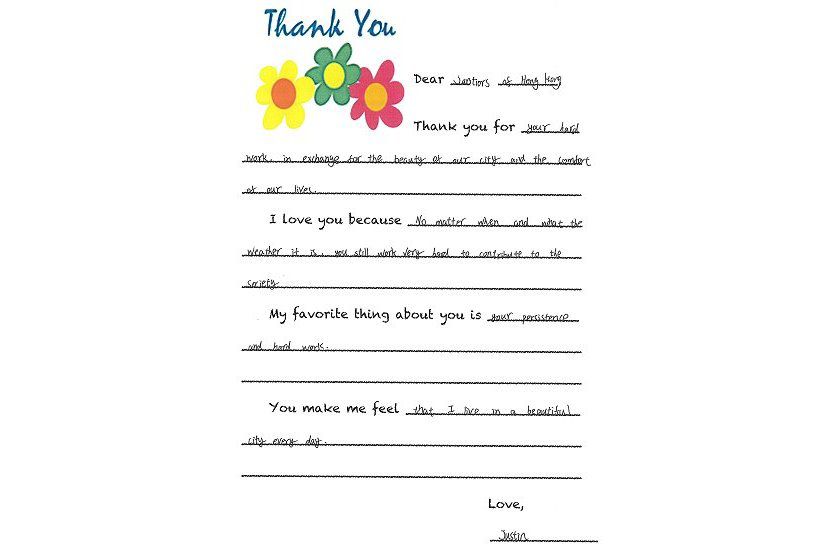 Thank You
Dear Janitors of Hong Kong
Thank you for your hard
work, in exchange for the beauty of our city and the comfort
of our lives.
I love you because No matter when and what the
weather it is, you still work very hard to contribute to the
society
My favorite thing about you is your persistence
and hard work.
You make me feel that I live in a beautiful
city every day.
Love,
Justin